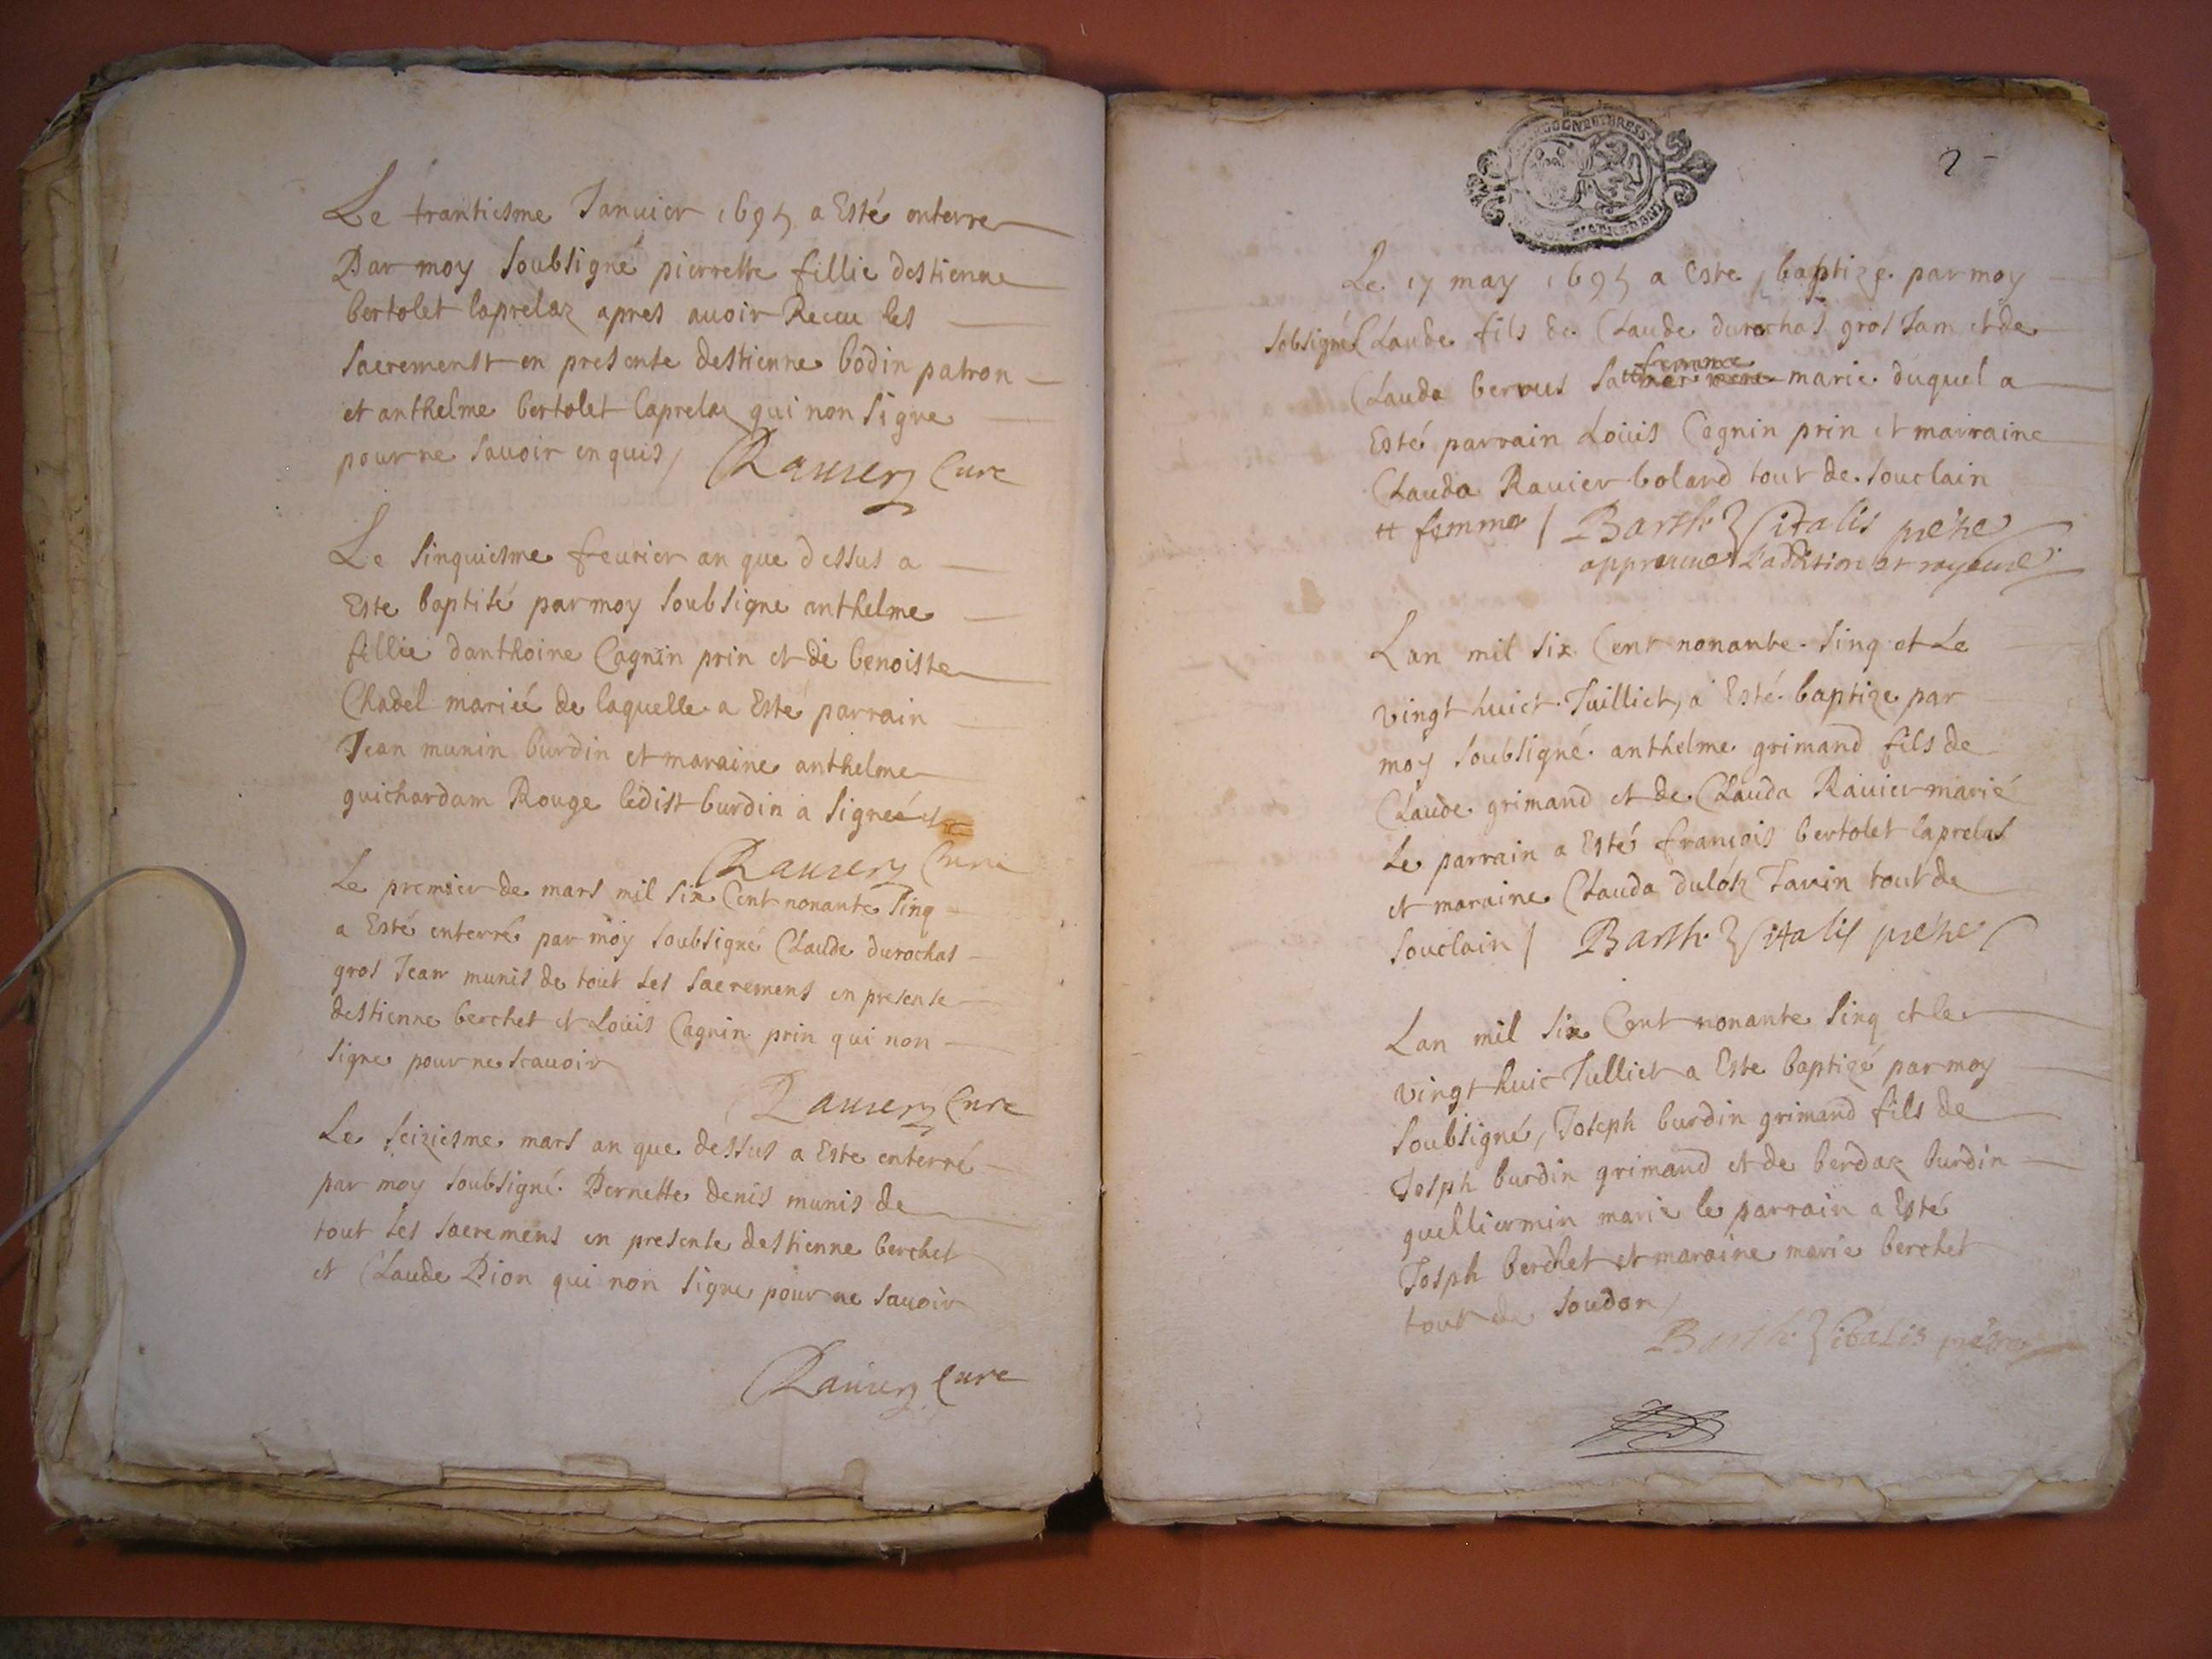 Le trantiesme Januier 1695 a Esté enterre
Par moy soubsigné pierrette fillie destienne
bertolet laprelaz apres auoir Receu les
sacrements en presente destienne bodin patron
et anthelme bertolet laprelaz qui non signe
pour ne sauoir enquis / Rauier Cure
Le sinquiesme feurier an que dessus a
Este baptisé par moy soubsigne anthelme
fillie danthoine Cagnin prin et de benoiste
Chadel mariée de laquelle a Este parrain
Jean munin burdin et maraine anthelme
guichardam Rouge ledist burdin a signeé
Rauier Cure
Le premier de mars mil six Cent nonante sinq
a Esté enterré par moy soubsigné Claude durochat
gros Jean munis de tout les sacremens en presente
destienne berchet et Louis Cagnin prin qui non
signe pour ne scauoir
Rauier Cure
Le seiziesme mars an que dessus a Este enterré
par moy soubsigné Pernette denis munis de
tout les sacremens en presente destienne berchet
et Claude Pion qui non signe pour ne sauoir
Rauier Cure
2
Le 17 may 1695 a Este baptize par moy
sobsigné Claude fils de Claude durochat gros Jam et de
femme
Clauda beruus sa marie duquel a
Esté parrain Louis Cagnin prin et marraine
Clauda Rauier bolard tout de souclain
# femme / Barth. Vitalis prétre
approuue l'addition et rayeure
Lan mil six Cent nonante sinq et Le
vingt huict Juilliet, a Esté baptize par
moy soubsigné anthelme grimand fils de
Claude grimand et de Clauda Rauier marié
Le parrain a Esté françois bertolet laprelas
et maraine Clauda Jauin tout de
souclain / Barth. Vitalis prétre
Lan mil six Cent nonante sinq et le
vingt huic Julliet a Este baptizé par moy
soubsigné, Joseph burdin grimand fils de
Josph burdin grimand et de berdaz burdin
guelliermin marie le parrain a Esté
Josph berchet et maraine marie berchet
tout de soudon /
Barth. Vitalis prétre